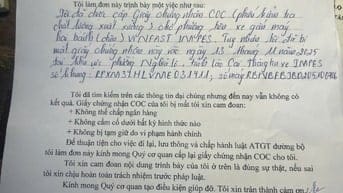 Tôi làm đơn này trình bày một việc như sau:
Tôi đã được cấp Giấy chứng nhận COC (phiếu kiểm tra
chất lượng xuất xưởng) cho phương tiện xe gắn máy
hai bánh (VINFAST IMPES). Tuy nhiên tôi đã bị
mất giấy chứng nhận này vào ngày 13 tháng 11 năm 2025
tại khu vực phường Nghĩa lộ, tỉnh Lào Cai. Thông tin xe IMPES
số khung:
Tôi đã tìm kiếm trên các thông tin đại chúng nhưng đến nay vẫn không có
kết quả. Giấy chứng nhận COC của bị mất tôi xin cam đoan:
+ Không thế chấp ngân hàng
+ Không cầm cố dưới bất kỳ hình thức nào
+ Không bị tạm giữ do vi phạm hành chính
Để thuận tiện cho việc đi lại, lưu thông và chấp hành luật ATGT đường bộ
tôi làm đơn này kính mong Quý cơ quan cấp lại giấy chứng nhận COC cho tôi.
Tôi xin cam đoan nội dung trình bày của tôi ở trên là đúng sự thật, nếu sai
tôi xin chịu hoàn toàn trách nhiệm trước pháp luật.
Kính mong Quý cơ quan tạo điều kiện giúp đỡ. Tôi xin trân thành cảm ơn